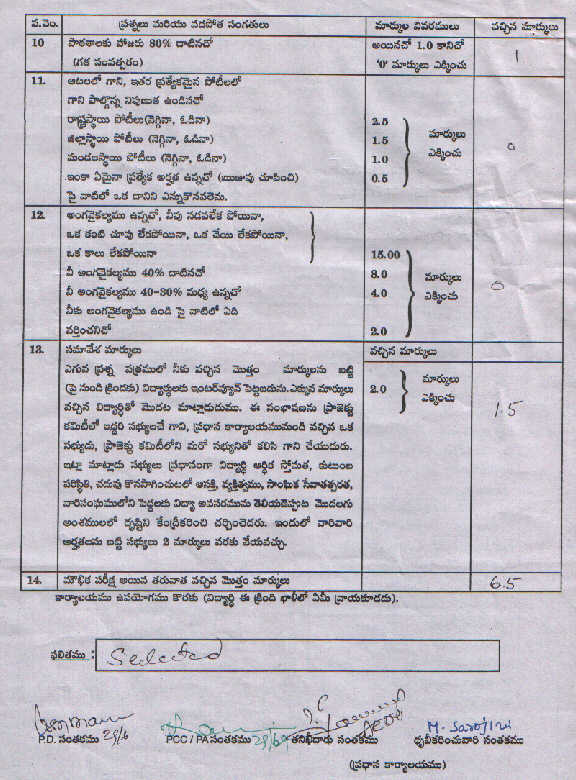 వ.నెం. ప్రశ్నలు మరియు వదపోత సంగతులు మార్కుల వివరములు వచ్చిన మార్కులు
10 పాఠశాలకు హాజరు 80% దాటినచో అయినచో 1.0 కానిచో 1
(గత సంవత్సరం) '0' మార్కులు ఎక్కించు
11. ఆటలలో గాని, ఇతర ప్రత్యేకమైన పోటీలలో
గాని పాల్గొన్న నిపుణుత ఉండినచో
రాష్ట్రస్థాయి పోటీలు (నెగ్గినా, ఓడినా) 2.5 మార్కులు 0
జిల్లాస్థాయి పోటీలు (నెగ్గినా, ఓడినా) 1.5 ఎక్కించు
మండలస్థాయి పోటీలు (నెగ్గినా, ఓడినా) 1.0
ఇంకా ఏమైనా ప్రత్యేక అర్హత ఉన్నచో (ఋజువు చూపించి) 0.5
పై వాటిలో ఒక దానిని ఎన్నుకొనవలెను.
12. అంగవైకల్యము ఉన్నచో, నీవు నడవలేక పోయినా,
ఒక కంటి చూపు లేకపోయినా, ఒక చేయి లేకపోయినా,
ఒక కాలు లేకపోయినా 15.00
నీ అంగవైకల్యము 40% దాటినచో 8.0 మార్కులు 0
నీ అంగవైకల్యము 40-80% మధ్య ఉన్నచో 4.0 ఎక్కించు
నీకు అంగవైకల్యము ఉండి పై వాటిలో ఏది
వర్తించనిచో 2.0
13. సమావేశ మార్కులు వచ్చిన మార్కులు
ఎగువ ప్రశ్న పత్రములో నీకు వచ్చిన మొత్తం మార్కులను బట్టి 2.0 మార్కులు
(పై నుండి క్రిందకు) విద్యార్థులకు ఇంటర్వ్యూన్ పెట్టబడును. ఎక్కువ మార్కులు ఎక్కించు
వచ్చిన విద్యార్థితో మొదట మాట్లాడుదుము. ఈ సంభాషణను ప్రాజెక్టు 1.5
కమిటీలో ఇద్దరి సభ్యులచే గాని, ప్రధాన కార్యాలయమునుండి వచ్చిన ఒక
సభ్యుడు, ప్రాజెక్టు కమిటీలోని మరో సభ్యునితో కలిసి గాని చేయుదురు.
ఇట్లా మాట్లాడు సభ్యులు ప్రధానంగా విద్యార్థి ఆర్థిక స్తోమత, కుటుంబ
పరిస్థితి, చదువు కొనసాగించుటలో ఆసక్తి, వ్యక్తిత్వము, సాంఘిక సేవాతత్పరత,
వారిసంఘములోని పెద్దలకు విద్యా అవసరమును తెలియచెప్పుట మొదలగు
అంశములలో దృష్టిని కేంద్రీకరించి చర్చించెదరు. ఇందులో వారివారి
అర్హతలను బట్టి సభ్యులు 2 మార్కులు వరకు వేయవచ్చు.
14. మౌఖిక పరీక్ష అయిన తరువాత వచ్చిన మొత్తం మార్కులు 6.5
కార్యాలయము ఉపయోగము కొరకు (విద్యార్థి ఈ క్రింది ఖాళీలో ఏమీ వ్రాయకూడదు).
ఫలితము : Selected
P.D. సంతకము 29/6 PCC / PA సంతకము 29/6 తనిఖీదారు సంతకము M. Sarojini ధృవీకరించువారి సంతకము
(ప్రధాన కార్యాలయము)